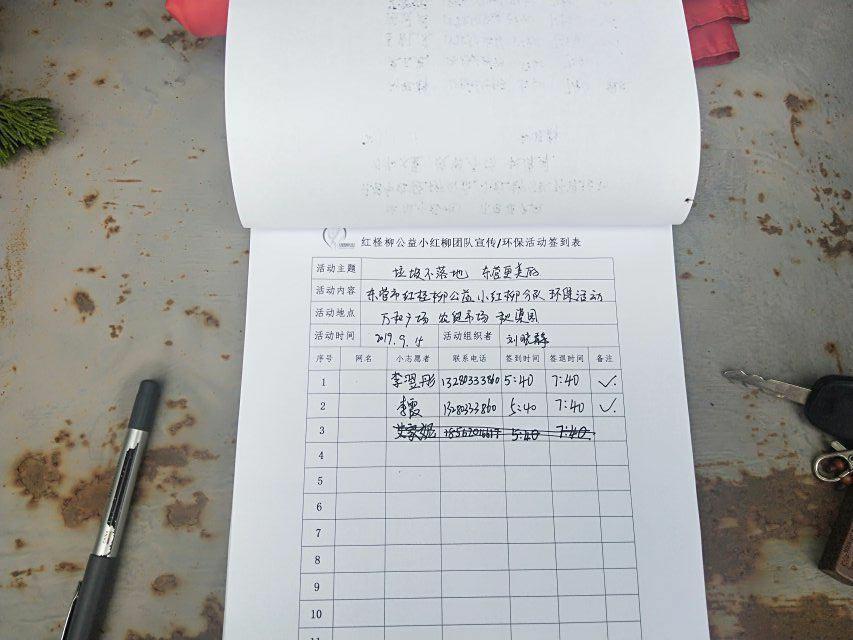 红柽柳公益小红柳团队宣传/环保活动签到表
活动主题 垃圾不落地 东营更美丽
活动内容 东营市红柽柳公益小红柳分队 环保活动
活动地点 万和广场 农贸市场
活动时间 2019.9.4 活动组织者 刘晓静
序号 网名 小志愿者 联系电话 签到时间 签退时间 备注
1 李翌彤 13280333860 5:40 7:40 ✓
2 李霞 13280333860 5:40 7:40 ✓
3 5:40 7:40
4
5
6
7
8
9
10
11